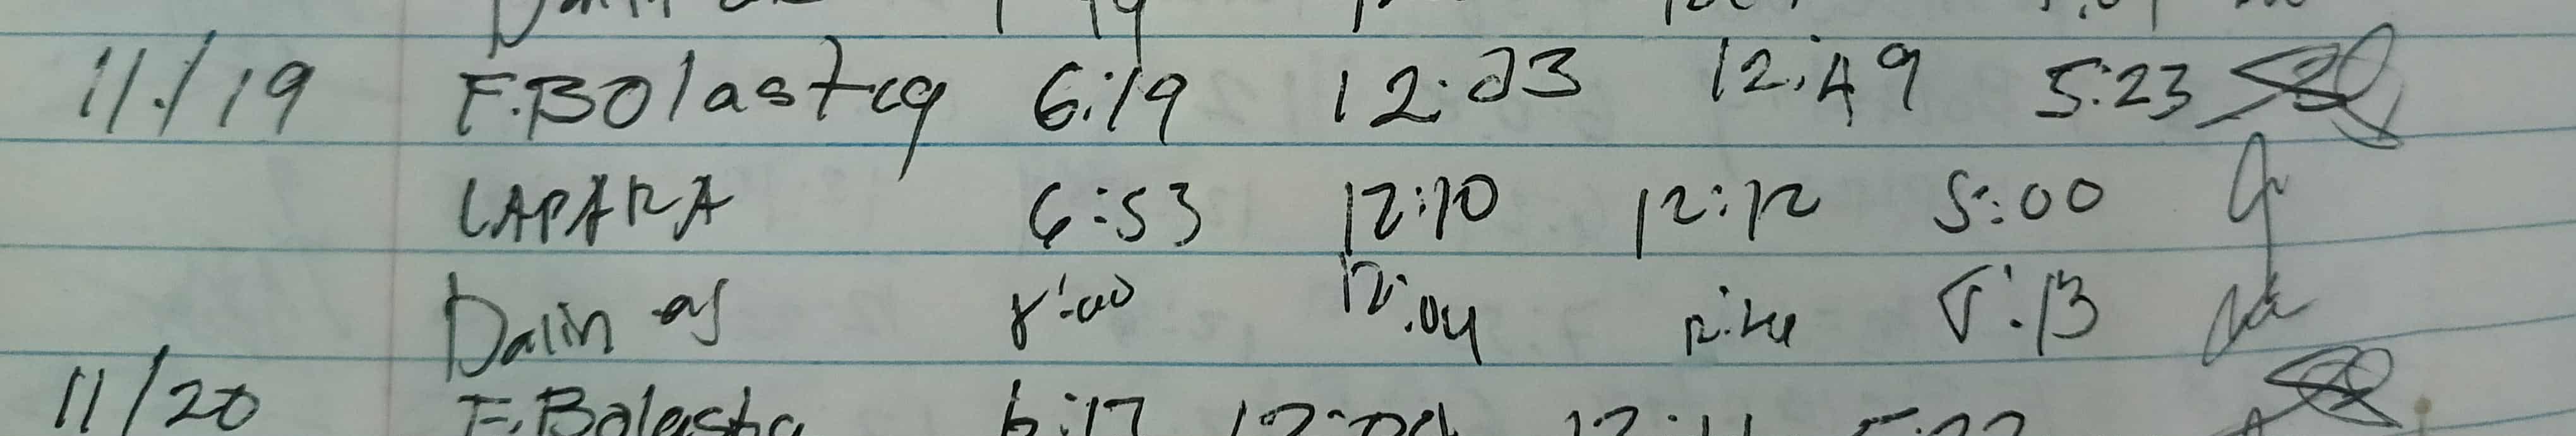 11/19 F.Bolastcq 6:19 12:23 12:49 5:23
LAPARA 6:53 12:10 12:12 5:00
Dalin as 8:00 12:04 5:13
11/20 F.Bolasta 6:17